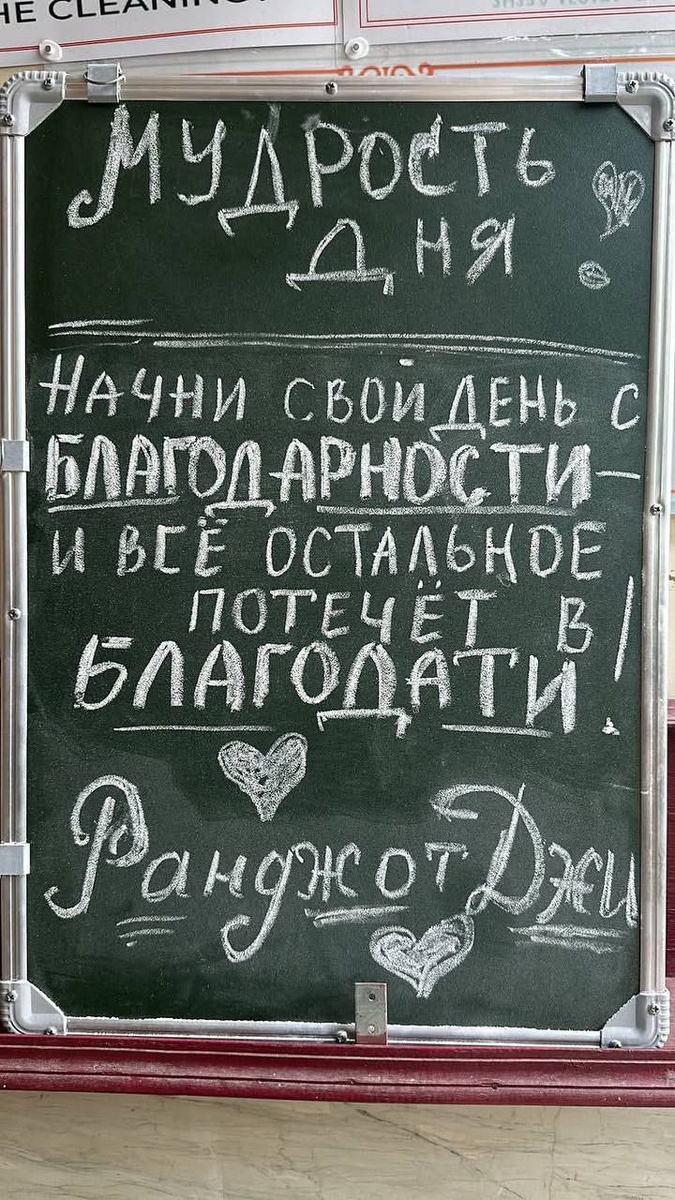 HE CLEANING
МУДРОСТЬ
ДНЯ
НАЧНИ СВОЙ ДЕНЬ С
БЛАГОДАРНОСТИ –
И ВСЁ ОСТАЛЬНОЕ
ПОТЕЧЁТ В
БЛАГОДАТИ!
Ранджот Джи